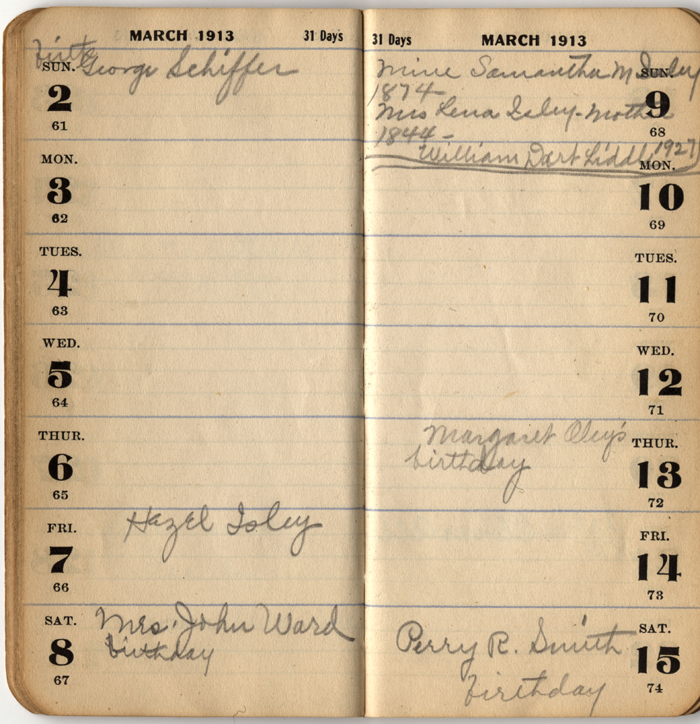 MARCH 1913
31 Days
birth
SUN.
George Schiffer
2
61
MON.
3
62
TUES.
4
63
WED.
5
64
THUR.
6
65
FRI.
Hazel Isley
7
66
SAT.
Mrs. John Ward
birthday
8
67
31 Days
MARCH 1913
Mine Samantha M Isley
SUN.
1874-
9
Mrs Lena Isley-Mother
68
1844-
William Dart Liddle, 1927
MON.
10
69
TUES.
11
70
WED.
12
71
Margaret Oley's
THUR.
birthday
13
72
FRI.
14
73
Perry R. Smith
SAT.
15
birthday
74